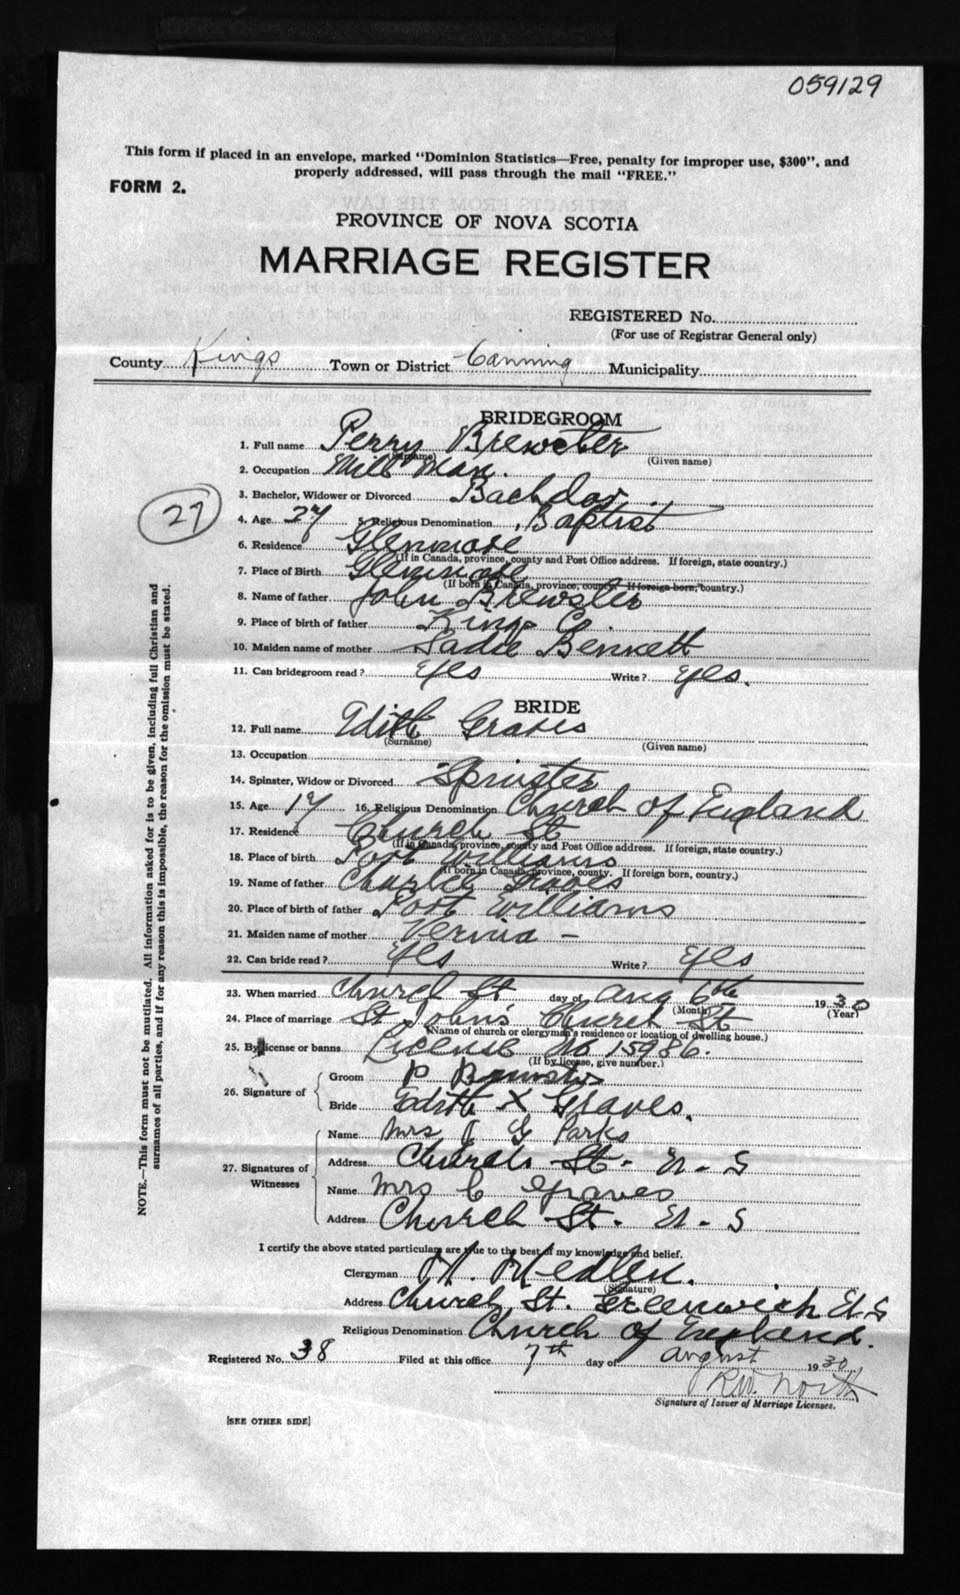 059129
This form if placed in an envelope, marked "Dominion Statistics—Free, penalty for improper use, $300", and
properly addressed, will pass through the mail "FREE."
FORM 2.
PROVINCE OF NOVA SCOTIA
MARRIAGE REGISTER
REGISTERED No.
(For use of Registrar General only)
County Kings Town or District Canning Municipality
BRIDEGROOM
1. Full name Perry Brewster
(Surname) (Given name)
2. Occupation Mill Man.
3. Bachelor, Widower or Divorced Bachelor
27
4. Age 27 5. Religious Denomination Baptist
6. Residence Glenmore
(If in Canada, province, county and Post Office address. If foreign, state country.)
7. Place of Birth Glenmore
(If born in Canada, province, county. If foreign born, country.)
8. Name of father John Brewster
9. Place of birth of father Kings Co.
10. Maiden name of mother Sadie Bennett
11. Can bridegroom read? Yes Write? Yes.
BRIDE
12. Full name Edith Graves
(Surname) (Given name)
13. Occupation
14. Spinster, Widow or Divorced Spinster
15. Age 17 16. Religious Denomination Church of England
17. Residence Church St
(If in Canada, province, county and Post Office address. If foreign, state country.)
18. Place of birth Port Williams
(If born in Canada, province, county. If foreign born, country.)
19. Name of father Charles Graves
20. Place of birth of father Port Williams
21. Maiden name of mother Vernia —
22. Can bride read? Yes Write? Yes
23. When married Church St day of Aug 6th 1930
(Month) (Year)
24. Place of marriage St John's Church St
(Name of church or clergyman's residence or location of dwelling house.)
25. By license or banns License No 15986.
(If by license, give number.)
26. Signature of Groom P Brewster
Bride Edith X Graves.
27. Signatures of Witnesses
Name Mrs J G Parks
Address Church St. N. S
Name Mrs C Graves
Address Church St. N. S
I certify the above stated particulars are true to the best of my knowledge and belief.
Clergyman Medlen.
(Signature)
Address Church St. Greenwich N. S
Religious Denomination Church of England.
Registered No. 38 Filed at this office 7th day of August 1930
R.W. North
Signature of Issuer of Marriage Licenses.
[SEE OTHER SIDE]
NOTE.—This form must not be mutilated. All information asked for is to be given, including full Christian and
surnames of all parties, and if for any reason this is impossible, the reason for the omission must be stated.